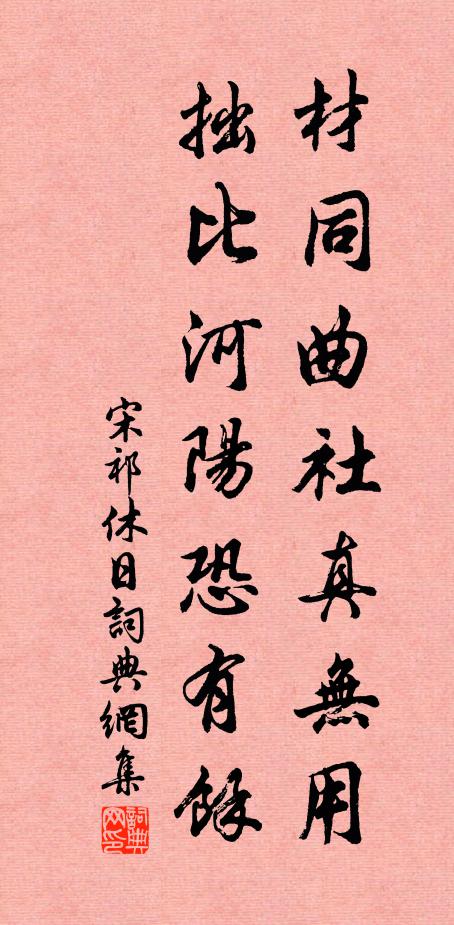 材同曲社真無用
拙比河陽恐有餘
宋祁休日詞典網集
詞典网印